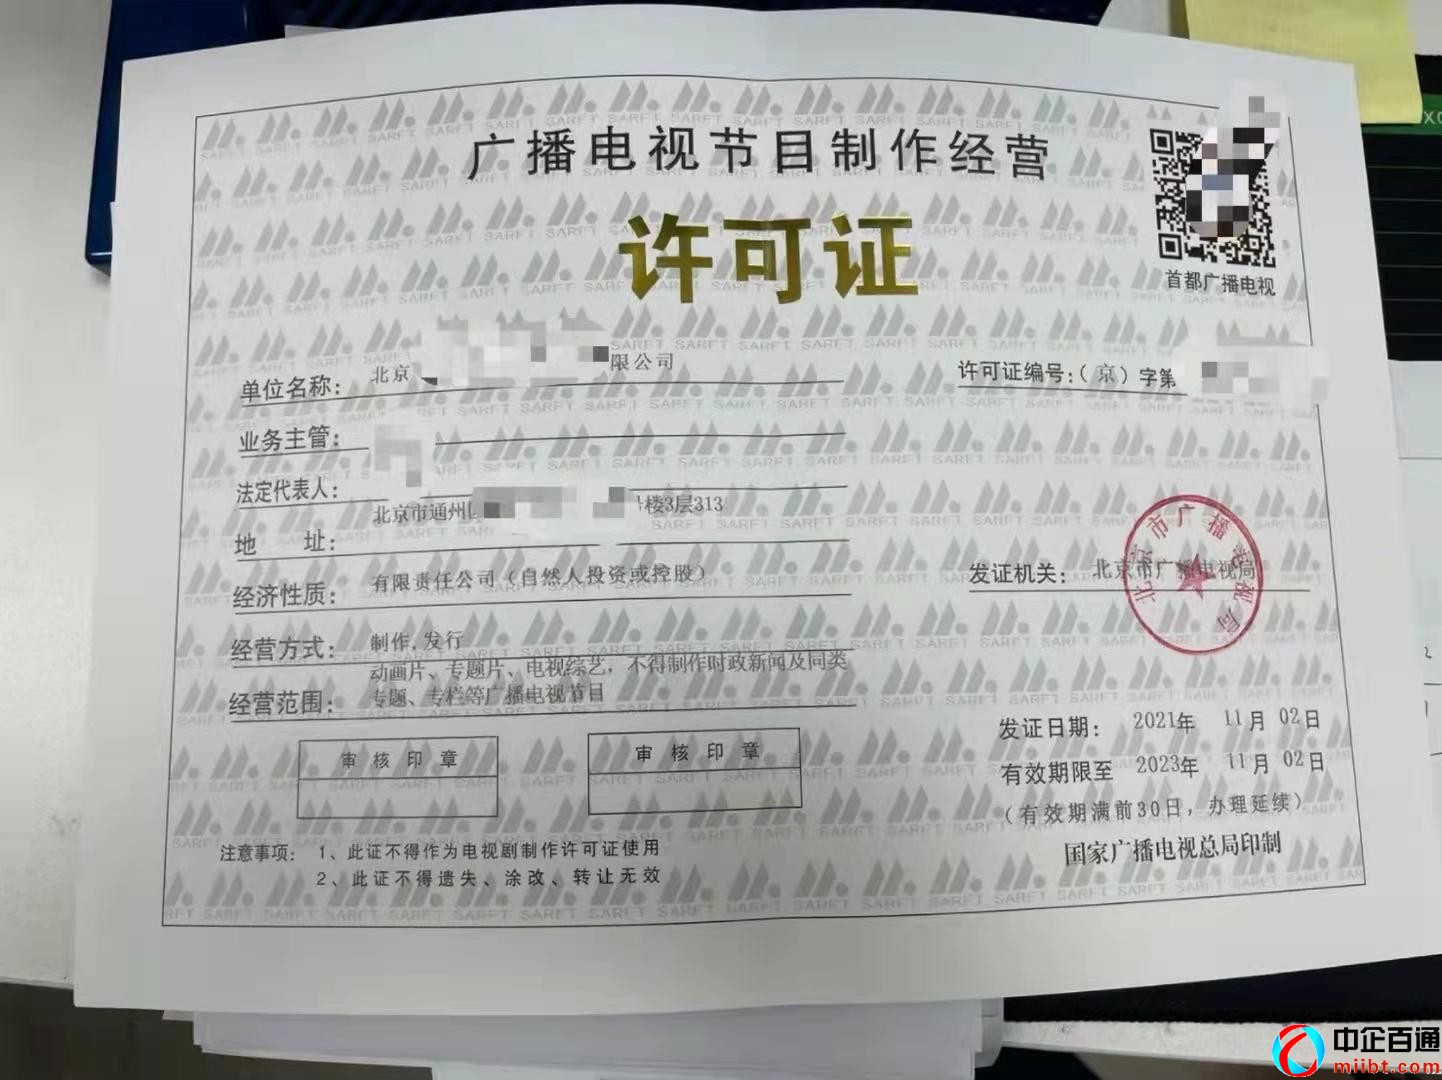 广播电视节目制作经营
许可证
首都广播电视
单位名称： 北京 限公司
许可证编号：（京）字第
业务主管：
法定代表人：
地 址： 北京市通州 号楼3层313
经济性质： 有限责任公司（自然人投资或控股）
发证机关： 北京市广播电视局
北京市广播电视局
经营方式： 制作,发行
经营范围： 动画片、专题片、电视综艺，不得制作时政新闻及同类
专题、专栏等广播电视节目
审核印章
审核印章
发证日期： 2021年 11月 02日
有效期限至 2023年 11月 02日
（有效期满前30日，办理延续）
国家广播电视总局印制
注意事项： 1、此证不得作为电视剧制作许可证使用
2、此证不得遗失、涂改、转让无效
SARFT
中企百通
miibt.com